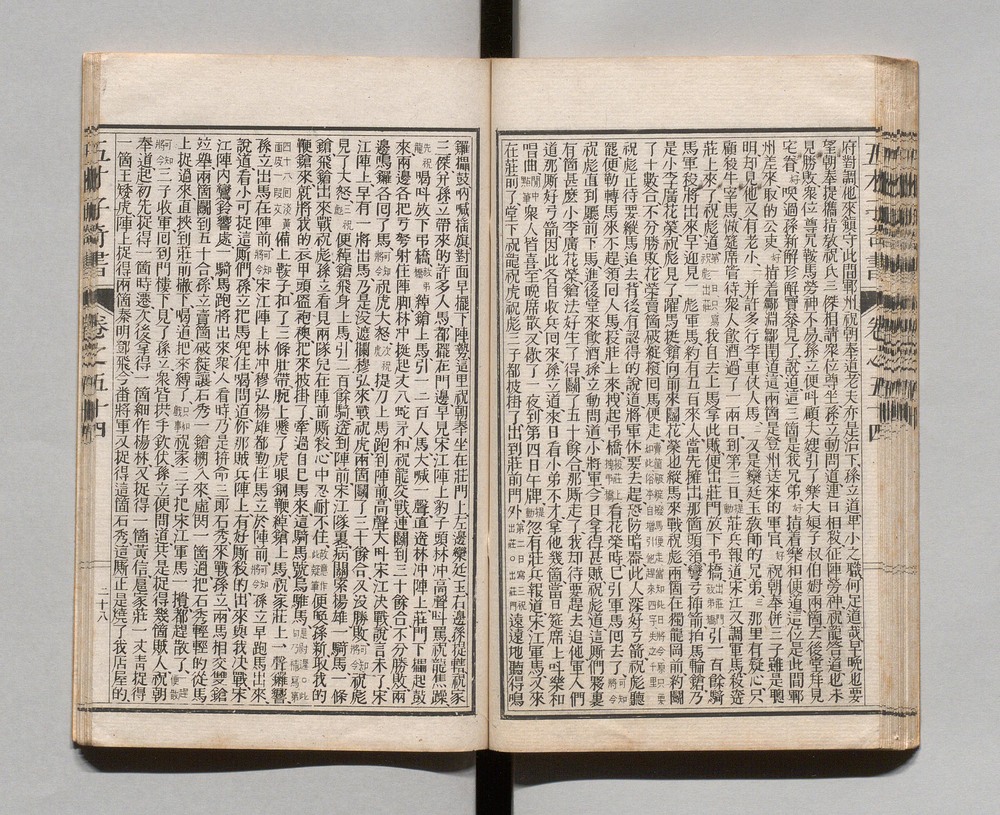 府對調他來鎮守此間鄆州祝朝奉道老夫亦是治下孫立道卑小之職何足道哉早晚也要
望朝奉提攜指教祝氏三傑相請衆位尊坐孫立動問道連日相殺征陣勞神祝龍答道也未
見勝敗衆位尊兄鞍馬勞神不易孫立便叫顧大嫂引了樂大娘子叔伯姆兩箇去後堂拜見
宅眷好喚過孫新解珍解寶參見了說道這三箇是我兄弟好指着樂和便道這位是此間鄆
州差來取的公吏好指着鄒淵鄒閏道這兩箇是登州送來的軍官好祝朝奉併三子雖是聰
明却見他又有老小并許多行李車仗人馬又是欒廷玉教師的兄弟那里有疑心只
顧殺牛宰馬做筵席管待衆人飲酒過了一兩日到第三日莊兵報道宋江又調軍馬殺逩
莊上來了祝彪道我自去上馬拿此賊便出莊門放下弔橋引一百餘騎
馬軍殺將出來早迎見一彪軍馬約有五百來人當先擁出那箇頭領彎弓插箭拍馬輪鎗乃
是小李廣花榮祝彪見了躍馬挺鎗向前來鬬花榮也縱馬來戰祝彪兩箇在獨龍岡前約鬬
了十數合不分勝敗花榮賣箇破綻撥回馬便走
祝彪正待要縱馬追去背後有認得的說道將軍休要去趕恐防暗器此人深好弓箭祝彪聽
罷便勒轉馬來不趕領回人馬投莊上來拽起弔橋看花榮時已引軍馬回去了
祝彪直到廳前下馬進後堂來飲酒孫立動問道小將軍今日拿得甚賊祝彪道這廝們夥裏
有箇甚麼小李廣花榮鎗法好生了得鬬了五十餘合那廝走了我却待要趕去追他軍人們
道那廝好弓箭因此各自收兵回來孫立道來日看小弟不才拿他幾箇當日筵席上叫樂和
唱曲衆人皆喜至晚席散又歇了一夜到第四日午牌忽有莊兵報道宋江軍馬又來
在莊前了堂下祝龍祝虎祝彪三子都披掛了出到莊前門外遠遠地聽得鳴
鑼擂鼓吶喊搖旗對面早擺下陣勢這里祝朝奉坐在莊門上左邊欒廷玉右邊孫提轄祝家
三傑并孫立帶來的許多人馬都擺在門邊早見宋江陣上豹子頭林冲高聲叫罵祝龍焦躁
喝叫放下弔橋綽鎗上馬引一二百人馬大喊一聲直逩林冲陣上莊門下擂起鼓
來兩邊各把弓弩射住陣脚林冲挺起丈八蛇矛和祝龍交戰連鬬到三十餘合不分勝敗兩
邊鳴鑼各回了馬祝虎大怒提刀上馬跑到陣前高聲大叫宋江決戰說言未了宋
江陣上早有一將出馬乃是沒遮攔穆弘來戰祝虎兩箇鬬了三十餘合又沒勝敗祝彪
見了大怒便綽鎗飛身上馬引二百餘騎逩到陣前宋江隊裏病關索楊雄一騎馬一條
鎗飛鎗出來戰祝彪孫立看見兩隊兒在陣前廝殺心中忍耐不住便喚孫新取我的
鞭鎗來就將我的衣甲頭盔袍襖把來披掛了牽過自己馬來這騎馬號烏騅馬
備上鞍子扣了三條肚帶腕上懸了虎眼鋼鞭綽鎗上馬祝家莊上一聲鑼響
孫立出馬在陣前宋江陣上林冲穆弘楊雄都勒住馬立於陣前孫立早跑馬出來
說道看小可捉這廝們孫立把馬兜住喝問道你那賊兵陣上有好廝殺的出來與我決戰宋
江陣內鸞鈴響處一騎馬跑將出來衆人看時乃是拚命三郎石秀來戰孫立兩馬相交雙鎗
並舉兩箇鬬到五十合孫立賣箇破綻讓石秀一鎗搠入來虛閃一箇過把石秀輕輕的從馬
上捉過來直挾到莊前撇下喝道把來縛了祝家三子把宋江軍馬一攪都趕散了
三子收軍回到門樓下見了孫立衆皆拱手欽伏孫立便問道共是捉得幾箇賊人祝朝
奉道起初先捉得一箇時遷次後拿得一箇細作楊林又捉得一箇黃信扈家莊一丈青捉得
一箇王矮虎陣上捉得兩箇秦明鄧飛今番將軍又捉得這箇石秀這廝正是燒了我店屋的
二十八